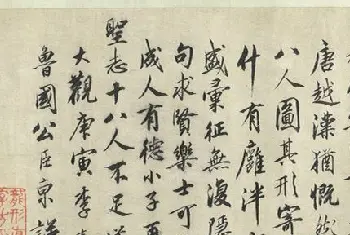 唐越漢猶慨然
八人圖其形寄
什有廱泮
盛彙征無復隱
句求賢樂士可
成人有德小子
聖志十八人不足
大觀庚寅季
魯國公臣京謹